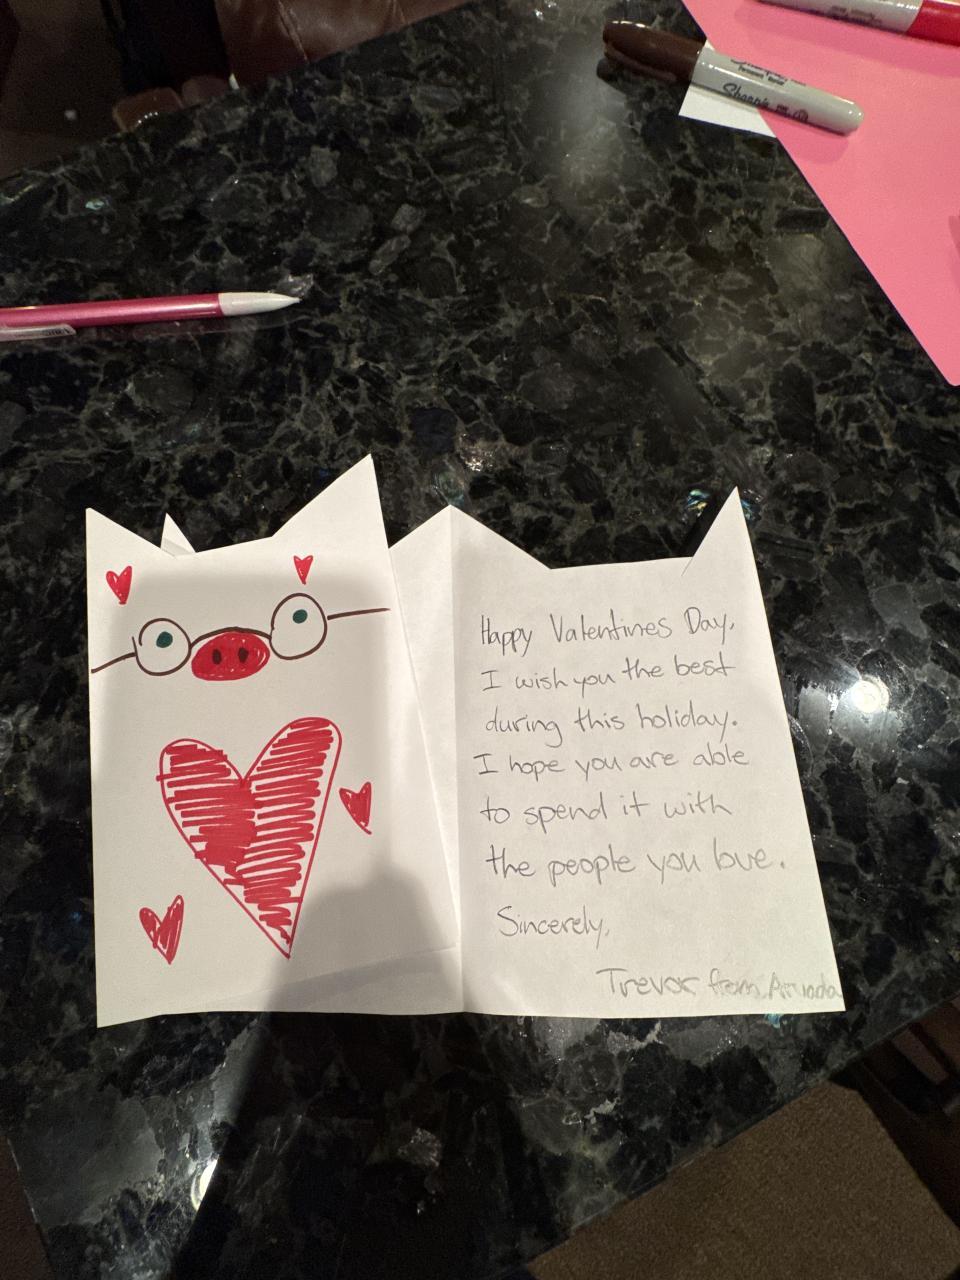 Sharpie
Happy Valentines Day,
I wish you the best
during this holiday.
I hope you are able
to spend it with
the people you love.
Sincerely,
Trevor from Arvada